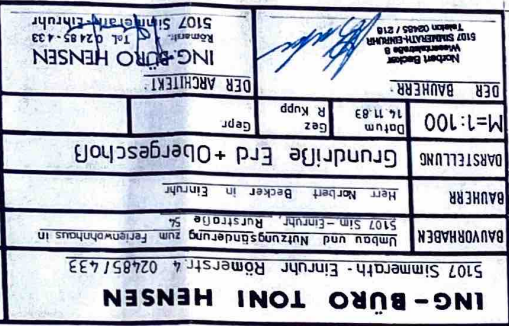 ING-BÜRO TONI HENSEN
5107 Simmerath-Einruhr Römerstr. 4 02485/433
BAUVORHABEN
Umbau und Nutzungsänderung zum Ferienwohnhaus in
5107 Sim-Einruhr, Rurstraße 54
BAUHERR
Herr Norbert Becker in Einruhr
DARSTELLUNG
Grundriße Erd + Obergeschoß
M=1:100
Datum
14.11.83
Gez
R Kupp
Gepr
DER BAUHERR:
Norbert Becker
Wiesenstraße 8
5107 SIMMERATH-EINRUHR
Telefon 02485 / 218
DER ARCHITEKT:
ING-BÜRO HENSEN
Römerstr. Tel. 02485-433
5107 Simmerath-Einruhr